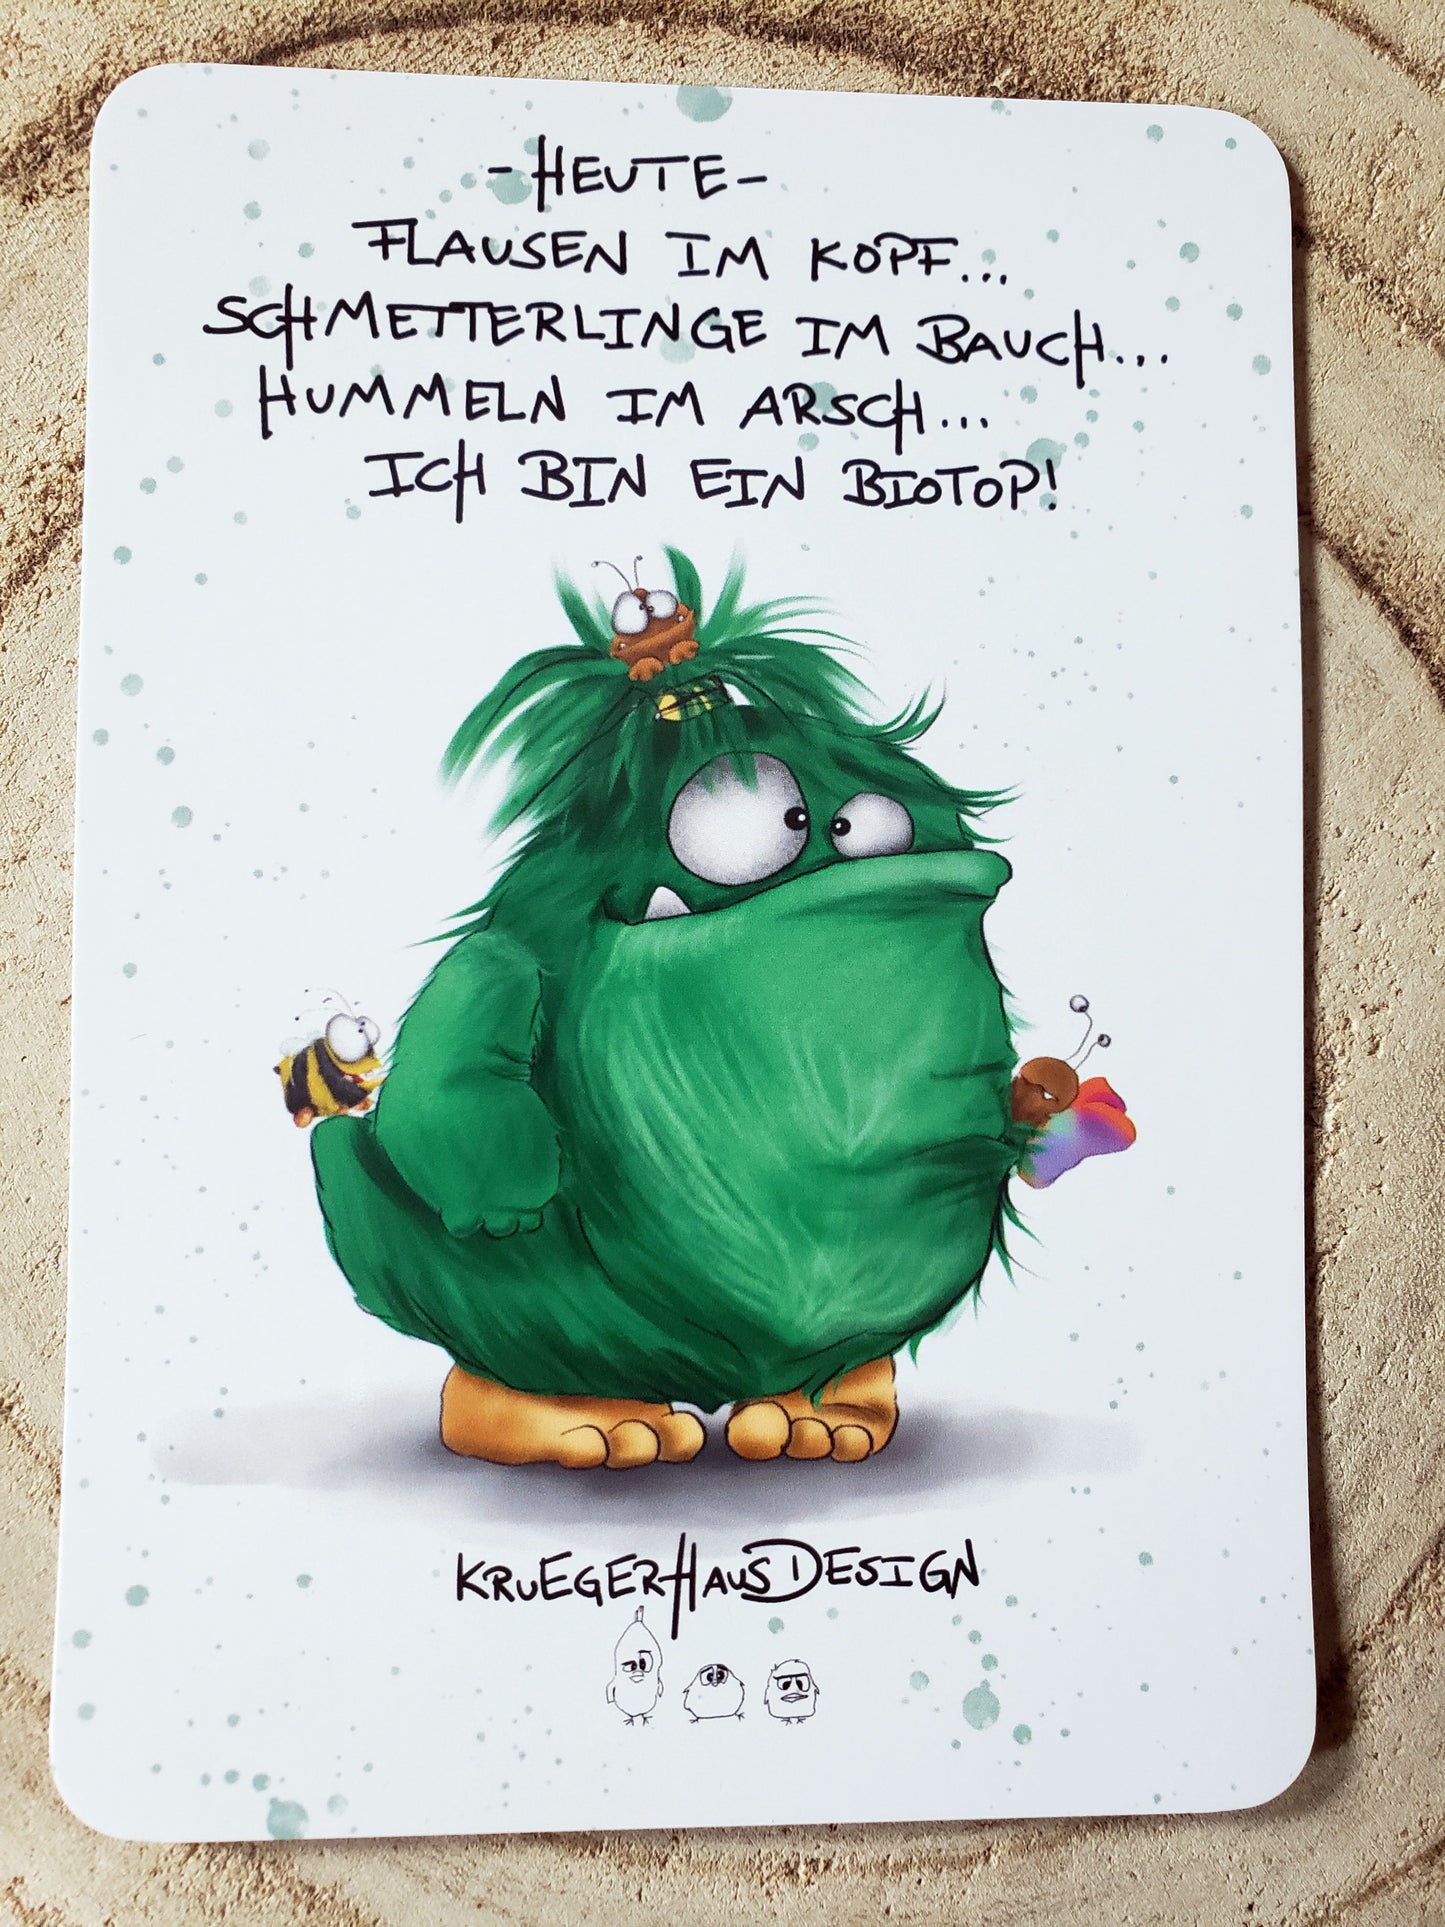 -HEUTE-
FLAUSEN IM KOPF...
SCHMETTERLINGE IM BAUCH...
HUMMELN IM ARSCH...
ICH BIN EIN BIOTOP!
KRUEGERHAUSDESIGN